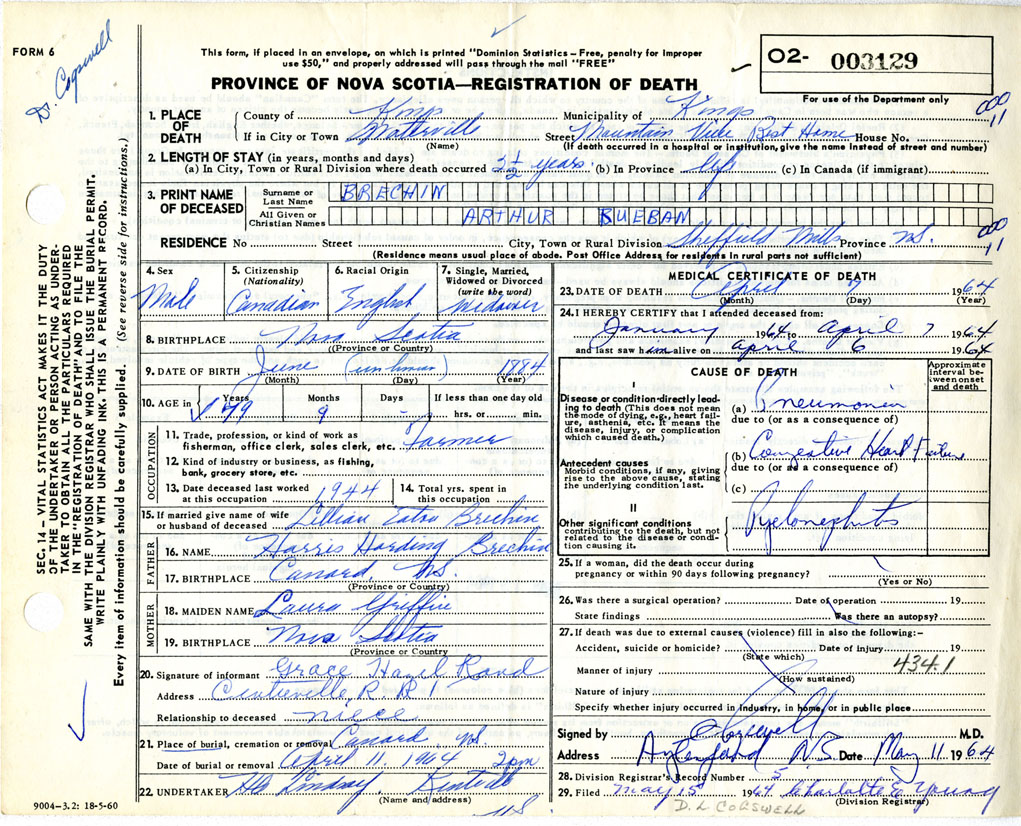 FORM 6
Dr. Cogswell
This form, if placed in an envelope, on which is printed "Dominion Statistics – Free, penalty for improper
use $50," and properly addressed will pass through the mail "FREE"
PROVINCE OF NOVA SCOTIA—REGISTRATION OF DEATH
02- 003129
For use of the Department only
000
11
1. PLACE OF DEATH { County of Kings Municipality of Kings
If in City or Town Waterville Street Mountain View Rest Home House No.
(Name) (If death occurred in a hospital or institution, give the name instead of street and number)
2. LENGTH OF STAY (in years, months and days)
(a) In City, Town or Rural Division where death occurred 2½ years. (b) In Province life (c) In Canada (if immigrant)
3. PRINT NAME OF DECEASED
Surname or Last Name BRECHIN
All Given or Christian Names ARTHUR RUEBAN
000
11
RESIDENCE No Street City, Town or Rural Division Sheffield Mills Province N.S.
(Residence means usual place of abode. Post Office Address for residents in rural parts not sufficient)
4. Sex Male
5. Citizenship (Nationality) Canadian
6. Racial Origin English
7. Single, Married, Widowed or Divorced (write the word) Widower
8. BIRTHPLACE Nova Scotia
(Province or Country)
9. DATE OF BIRTH June 1884
(Month) (Day) (Year)
10. AGE in Years 79 Months 9 Days - If less than one day old hrs. or min.
OCCUPATION
11. Trade, profession, or kind of work as fisherman, office clerk, sales clerk, etc. Farmer
12. Kind of industry or business, as fishing, bank, grocery store, etc.
13. Date deceased last worked at this occupation 1944
14. Total yrs. spent in this occupation
15. If married give name of wife or husband of deceased Lillian Eaton Brechin
FATHER
16. NAME Harris Harding Brechin
17. BIRTHPLACE Canard, N.S.
(Province or Country)
MOTHER
18. MAIDEN NAME Laura Griffin
19. BIRTHPLACE Nova Scotia
(Province or Country)
20. Signature of informant Grace Hazel Rand
Address Centreville, R R 1
Relationship to deceased niece
21. Place of burial, cremation or removal Canard N.S.
Date of burial or removal April 11, 1964 2pm
22. UNDERTAKER Lindsay Kentville
(Name and address)
N.S.
9004—3.2: 18-5-60
MEDICAL CERTIFICATE OF DEATH
23. DATE OF DEATH April 7 1964
(Month) (Day) (Year)
24. I HEREBY CERTIFY that I attended deceased from:
January 1964 to April 7 1964
and last saw him alive on April 6 1964
CAUSE OF DEATH
Approximate interval between onset and death
I
Disease or condition directly leading to death (This does not mean the mode of dying, e.g., heart failure, asthenia, etc. It means the disease, injury, or complication which caused death.)
(a) Pneumonia
due to (or as a consequence of)
Antecedent causes
Morbid conditions, if any, giving rise to the above cause, stating the underlying condition last.
(b) Congestive Heart Failure
due to (or as a consequence of)
(c)
II
Other significant conditions
contributing to the death, but not related to the disease or condition causing it.
Pyelonephritis
25. If a woman, did the death occur during
pregnancy or within 90 days following pregnancy?
(Yes or No)
26. Was there a surgical operation? Date of operation 19
State findings Was there an autopsy?
27. If death was due to external causes (violence) fill in also the following:–
Accident, suicide or homicide? Date of injury 19
(State which)
Manner of injury 4341
(How sustained)
Nature of injury
Specify whether injury occurred in industry, in home, or in public place
Signed by Cogswell M.D.
Address Aylesford N.S. Date May 11 1964
28. Division Registrar's Record Number 5
29. Filed May 15 1964 Charlotte E Young
(Division Registrar)
D. L COGSWELL
SEC. 14 – VITAL STATISTICS ACT MAKES IT THE DUTY
OF THE UNDERTAKER OR PERSON ACTING AS UNDER-
TAKER TO OBTAIN ALL THE PARTICULARS REQUIRED
IN THE "REGISTRATION OF DEATH" AND TO FILE THE
SAME WITH THE DIVISION REGISTRAR WHO SHALL ISSUE THE BURIAL PERMIT.
WRITE PLAINLY WITH UNFADING INK. THIS IS A PERMANENT RECORD.
Every item of information should be carefully supplied. (See reverse side for instructions.)